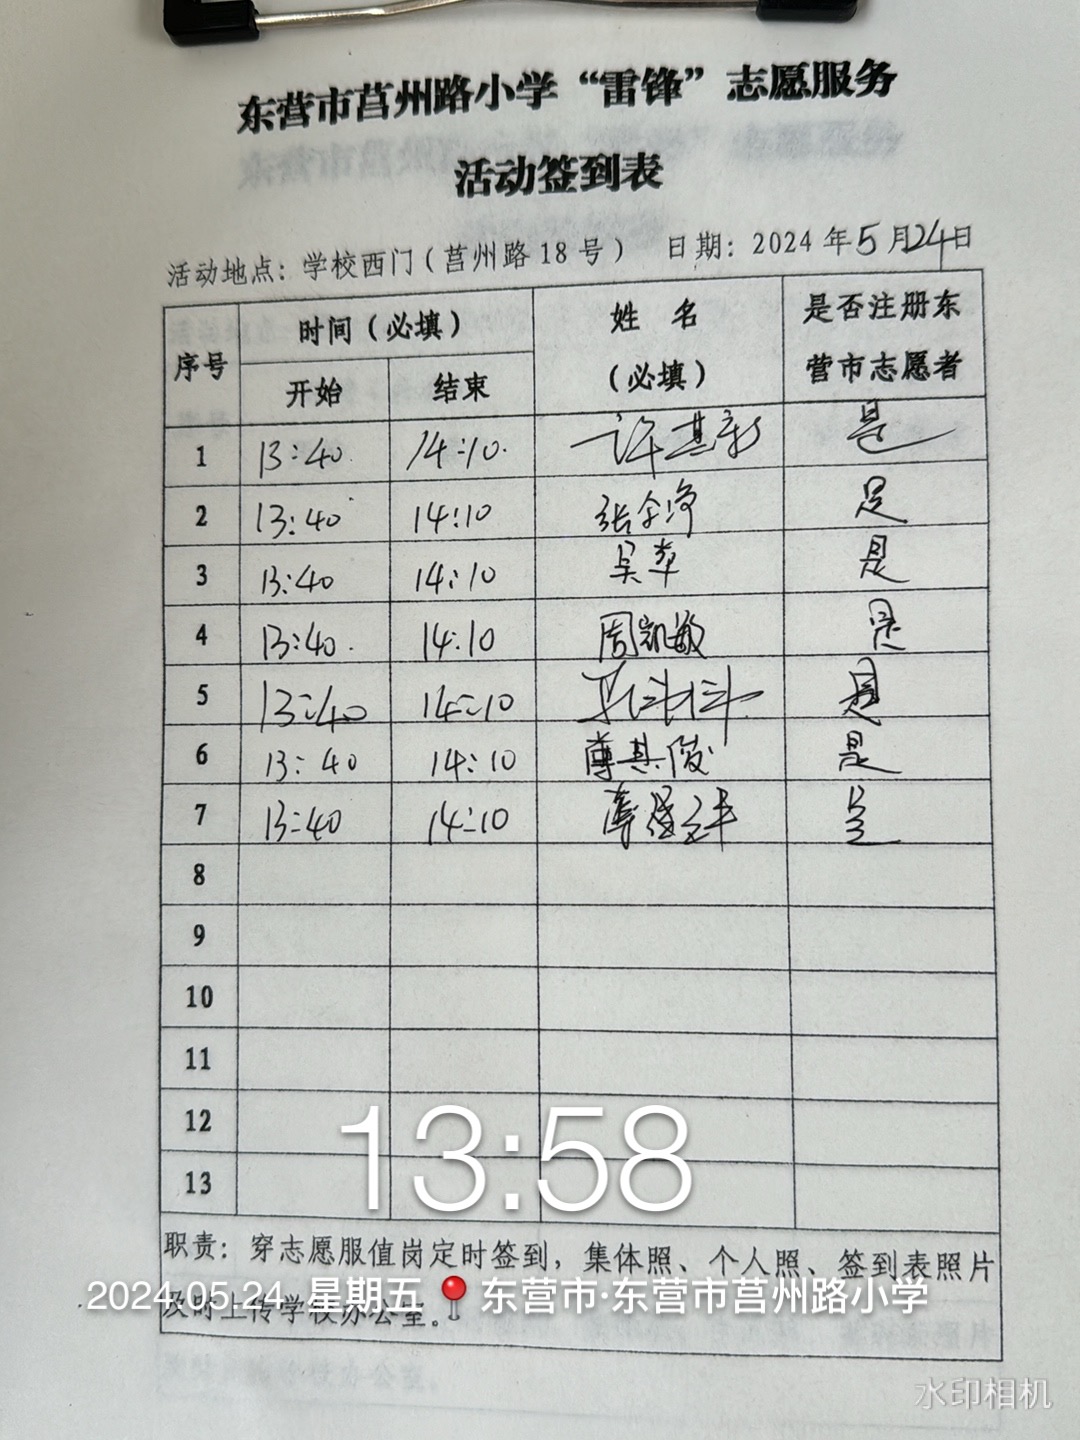 东营市莒州路小学“雷锋”志愿服务
活动签到表
活动地点：学校西门（莒州路18号） 日期：2024年5月24日
序号 时间（必填） 姓 名（必填） 是否注册东营市志愿者
开始 结束
1 13:40 14:10 许其 是
2 13:40 14:10 张 是
3 13:40 14:10 吴苹 是
4 13:40 14:10 周凯敏 是
5 13:40 14:10 是
6 13:40 14:10 薄其俊 是
7 13:40 14:10 薄 是
8
9
10
11
12
13
13:58
职责：穿志愿服值岗定时签到，集体照、个人照、签到表照片
及时上传学校办公室。
2024.05.24 星期五 东营市·东营市莒州路小学
水印相机